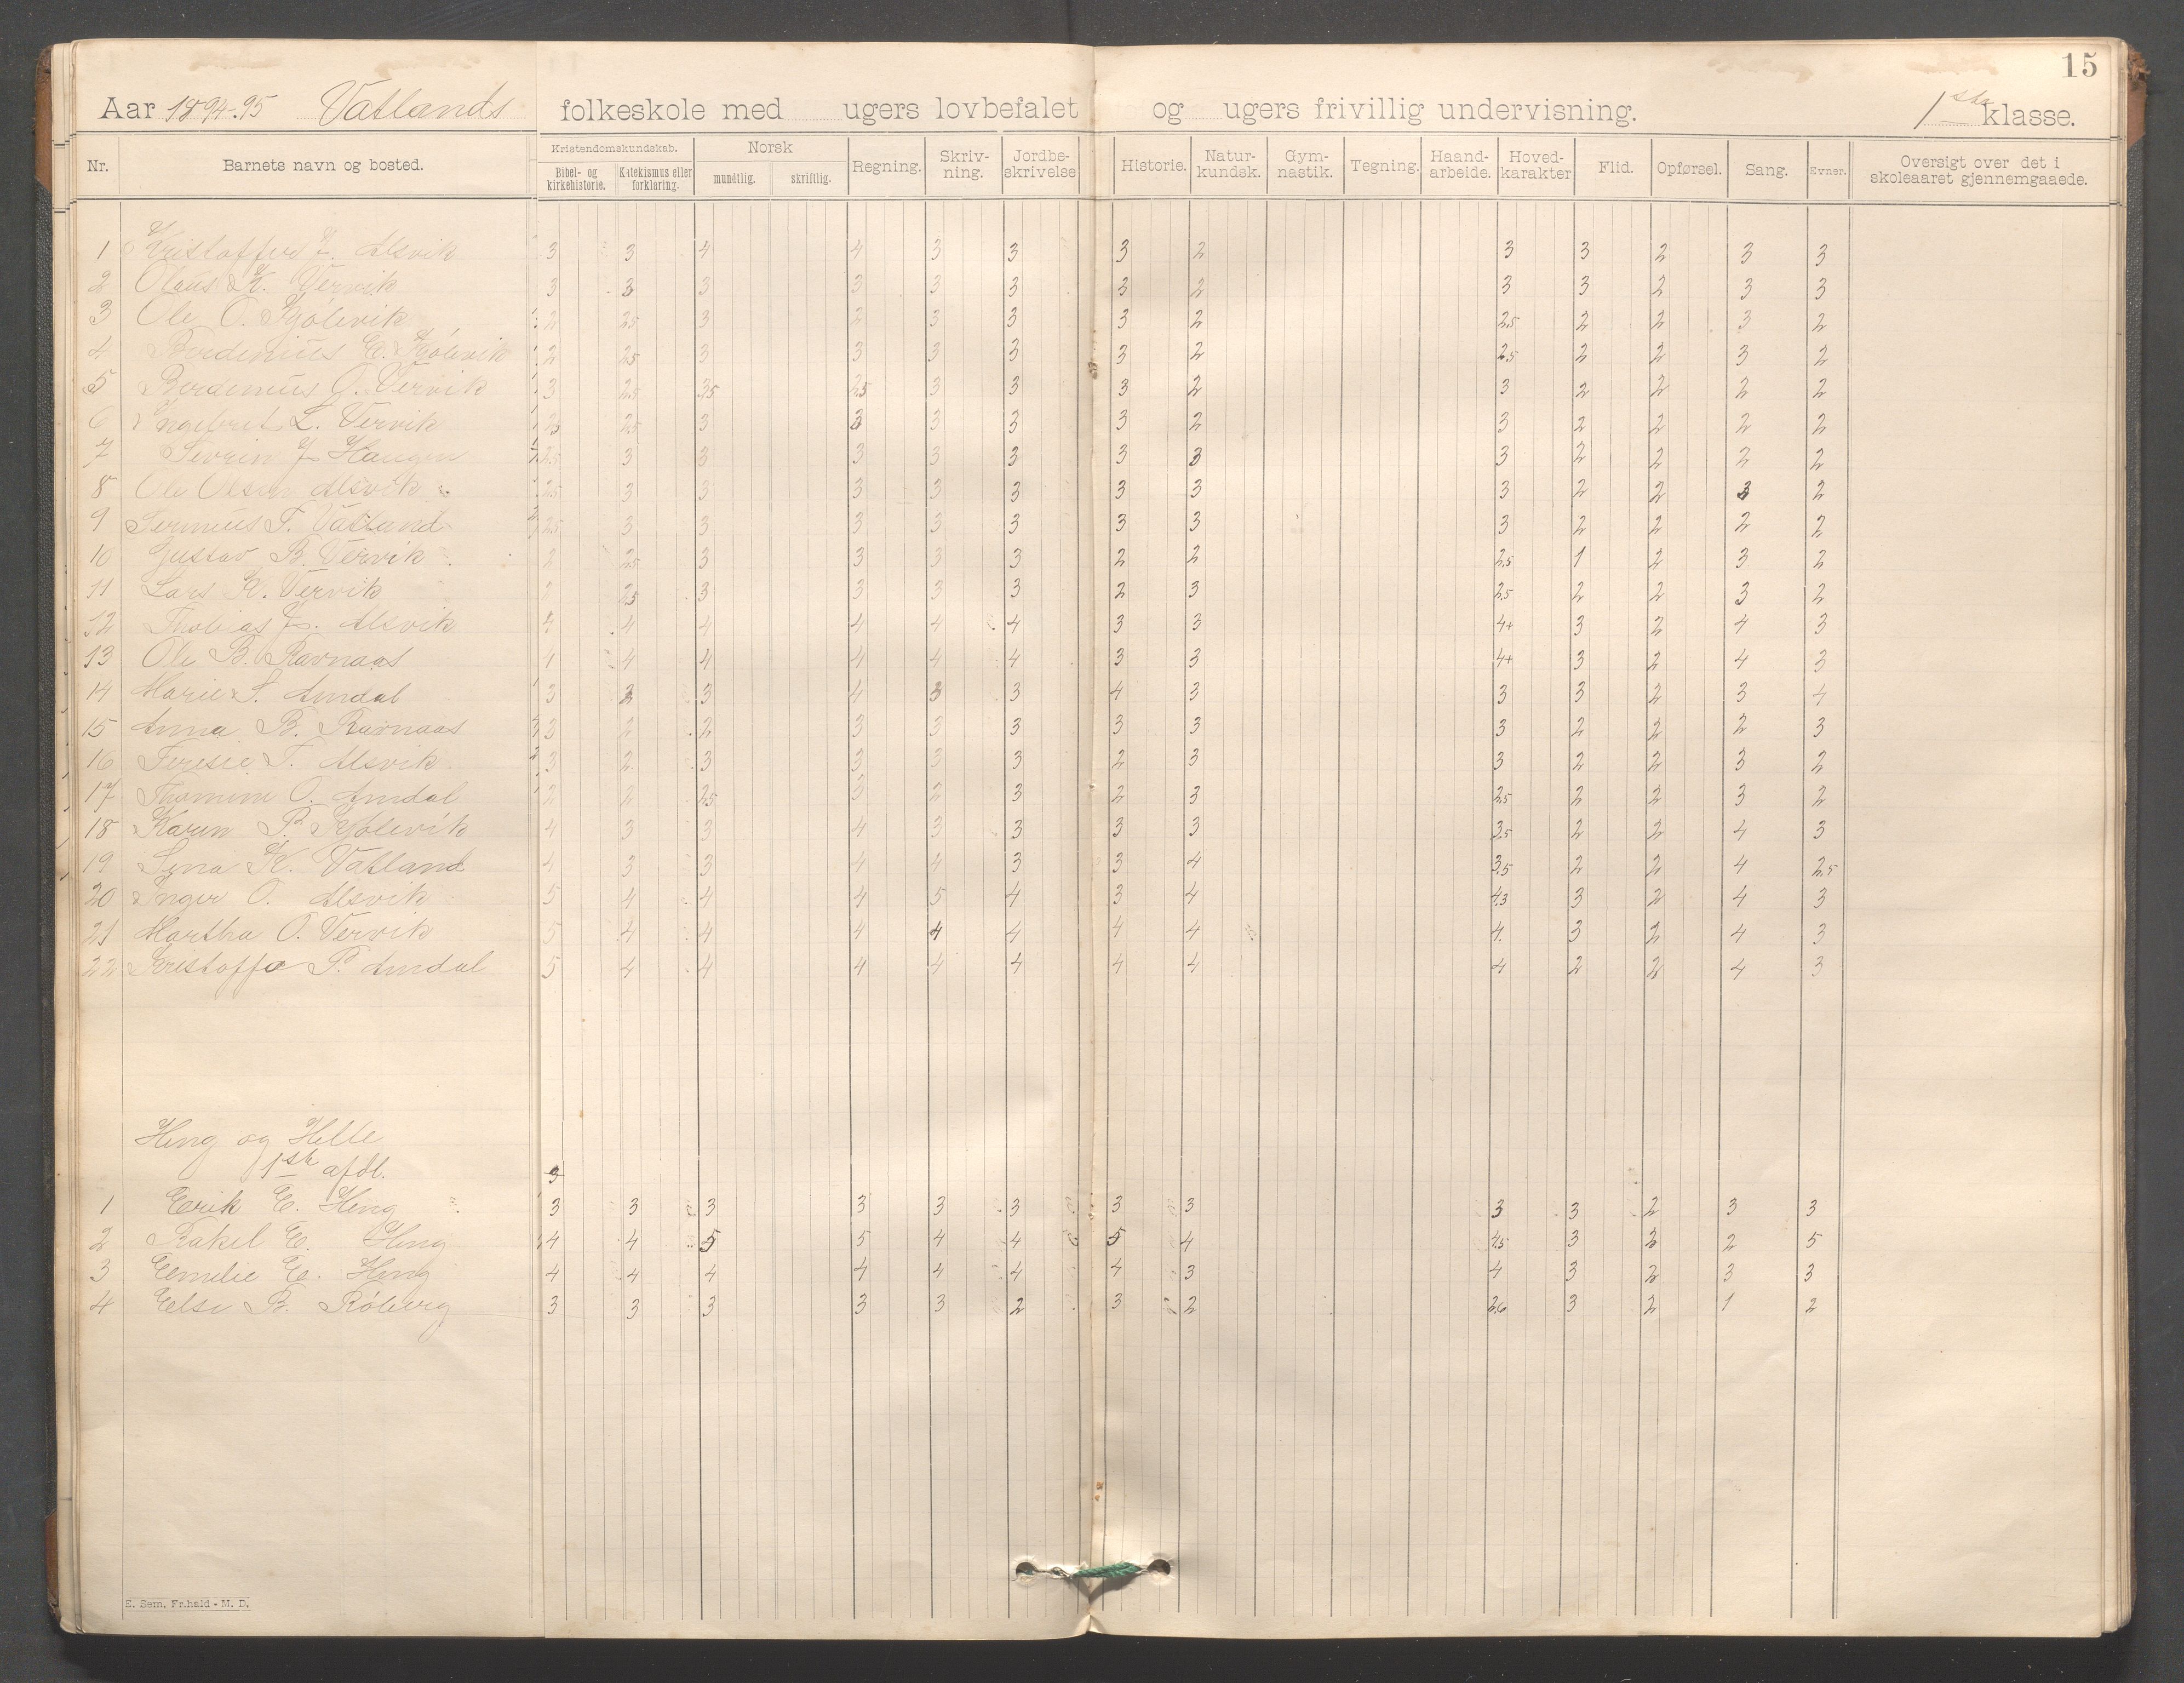 15
Aar 1894-95 Vatlands folkeskole med ugers lovbefalet og ugers frivillig undervisning. 1ste klasse.
Nr. Barnets navn og bosted. Kristendomskundskab. Bibel- og kirkehistorie. Katekismus eller forklaring. Norsk mundtlig. skriftlig. Regning. Skriv-ning. Jordbe-skrivelse Historie. Natur-kundsk. Gym-nastik. Tegning. Haand-arbeide. Hoved-karakter Flid. Opførsel. Sang. Evner. Oversigt over det i skoleaaret gjennemgaaede.
1 Kristoffer J. Alsvik 3 3 4 4 3 3 3 2 3 3 2 3 3
2 Olaus K. Vervik 3 3 3 3 3 3 3 2 3 3 2 3 3
3 Ole O. Kjölevik 2 2.5 3 2 3 3 3 2 2.5 2 2 3 2
4 Berdinius E. Kjölevik 2 2.5 3 3 3 3 3 2 2.5 2 2 3 2
5 Berdinius O. Vervik 3 2.5 3.5 2.5 3 3 3 2 3 2 2 2 2
6 Ingebret L. Vervik 2.5 3 3 3 3 3 2 3 2 2 2 2
7 Sevrin J. Haugen 2.5 3 3 3 3 3 3 3 3 2 2 2 2
8 Ole Olsen Alsvik 2.5 3 3 3 3 3 3 3 3 2 2 3 2
9 T. Vatland 2.5 3 3 3 3 3 3 3 3 2 2 2 2
10 Gustav B. Vervik 2 2.5 3 3 3 3 2 2 2.5 1 2 3 2
11 Lars K. Vervik 2 2.5 3 3 3 3 2 3 2.5 2 2 3 2
12 Thobias J. Alsvik 4 4 4 4 4 4 3 3 4+ 3 2 4 3
13 Ole B. Ravnaas 4 4 4 4 4 4 3 3 4+ 3 2 4 3
14 Marie S. Amdal 3 3 3 4 3 3 4 3 3 3 2 3 4
15 Anna B. Ravnaas 3 2 2 3 3 3 3 3 3 2 2 2 3
16 Teresie T. Alsvik 3 2 3 3 3 3 2 3 3 2 2 3 2
17 Thomine O. Amdal 2 2 2.5 3 2 3 2 3 2.5 2 2 3 2
18 Karen P. Kjölevik 4 3 3 4 3 3 3 3 3.5 2 2 4 3
19 Sina K. Vatland 4 3 3 4 4 3 3 4 3.5 2 2 4 2.5
20 Inger O. Alsvik 5 4 4 4 5 4 3 4 4.3 3 2 4 3
21 Martha O. Vervik 5 4 4 4 4 4 4 4 4. 3 2 4 3
22 Kristoffa P. Amdal 5 4 4 4 4 4 4 4 4 2 2 4 3
Heng og Helle
1ste afdl. 3
1 Eerik E. Heng 3 3 3 3 3 3 3 3 3 3 2 3 3
2 Rakel E. Heng 4 4 5 5 4 4 5 4 4.5 3 3 2 5
3 Eemilie E. Heng 4 4 4 4 4 4 4 3 4 3 2 3 3
4 Eelse B. Röberg 3 3 3 3 3 2 3 2 2.6 3 2 1 2
E. Sem, Fr.hald - M. D.